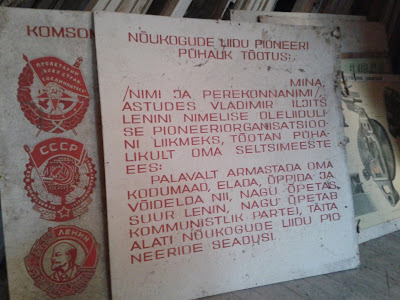 KOMSOM
ПРОЛЕТАРИИ
ВСЕХ СТРАН
СОЕДИНЯЙТЕСЬ
СССР
ЛЕНИН
NÕUKOGUDE LIIDU PIONEERI
PÜHALIK TÕOTUS:
MINA,
/NIMI JA PEREKONNANIMI/,
ASTUDES VLADIMIR ILJITŠ
LENINI NIMELISE ÜLELIIDULI-
SE PIONEERIORGANISATSIOO-
NI LIIKMEKS, TÕOTAN PÜHA-
LIKULT OMA SELTSIMEESTE
EES:
PALAVALT ARMASTADA OMA
KODUMAAD, ELADA, ÕPPIDA JA
VÕIDELDA NII, NAGU ÕPETAS
SUUR LENIN, NAGU ÕPETAB
KOMMUNISTLIK PARTEI, TÄITA
ALATI NÕUKOGUDE LIIDU PIO-
NEERIDE SEADUSI.